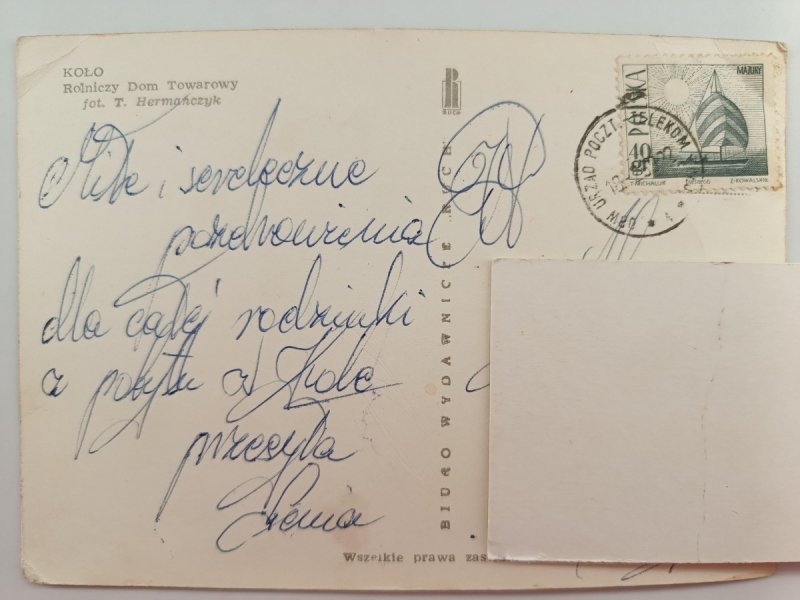 KOŁO
Rolniczy Dom Towarowy
fot. T. Hermańczyk
RUCH
BIURO WYDAWNICZE RUCH
Miłe i serdeczne
pozdrowienia
dla całej rodzinki
z pobytu w Kole
przesyła
Wszelkie prawa zas
POLSKA
40 GR
MAZURY
T. MICHALUK
Z. KOWALSKI
URZĄD POCZT. TELEKOM